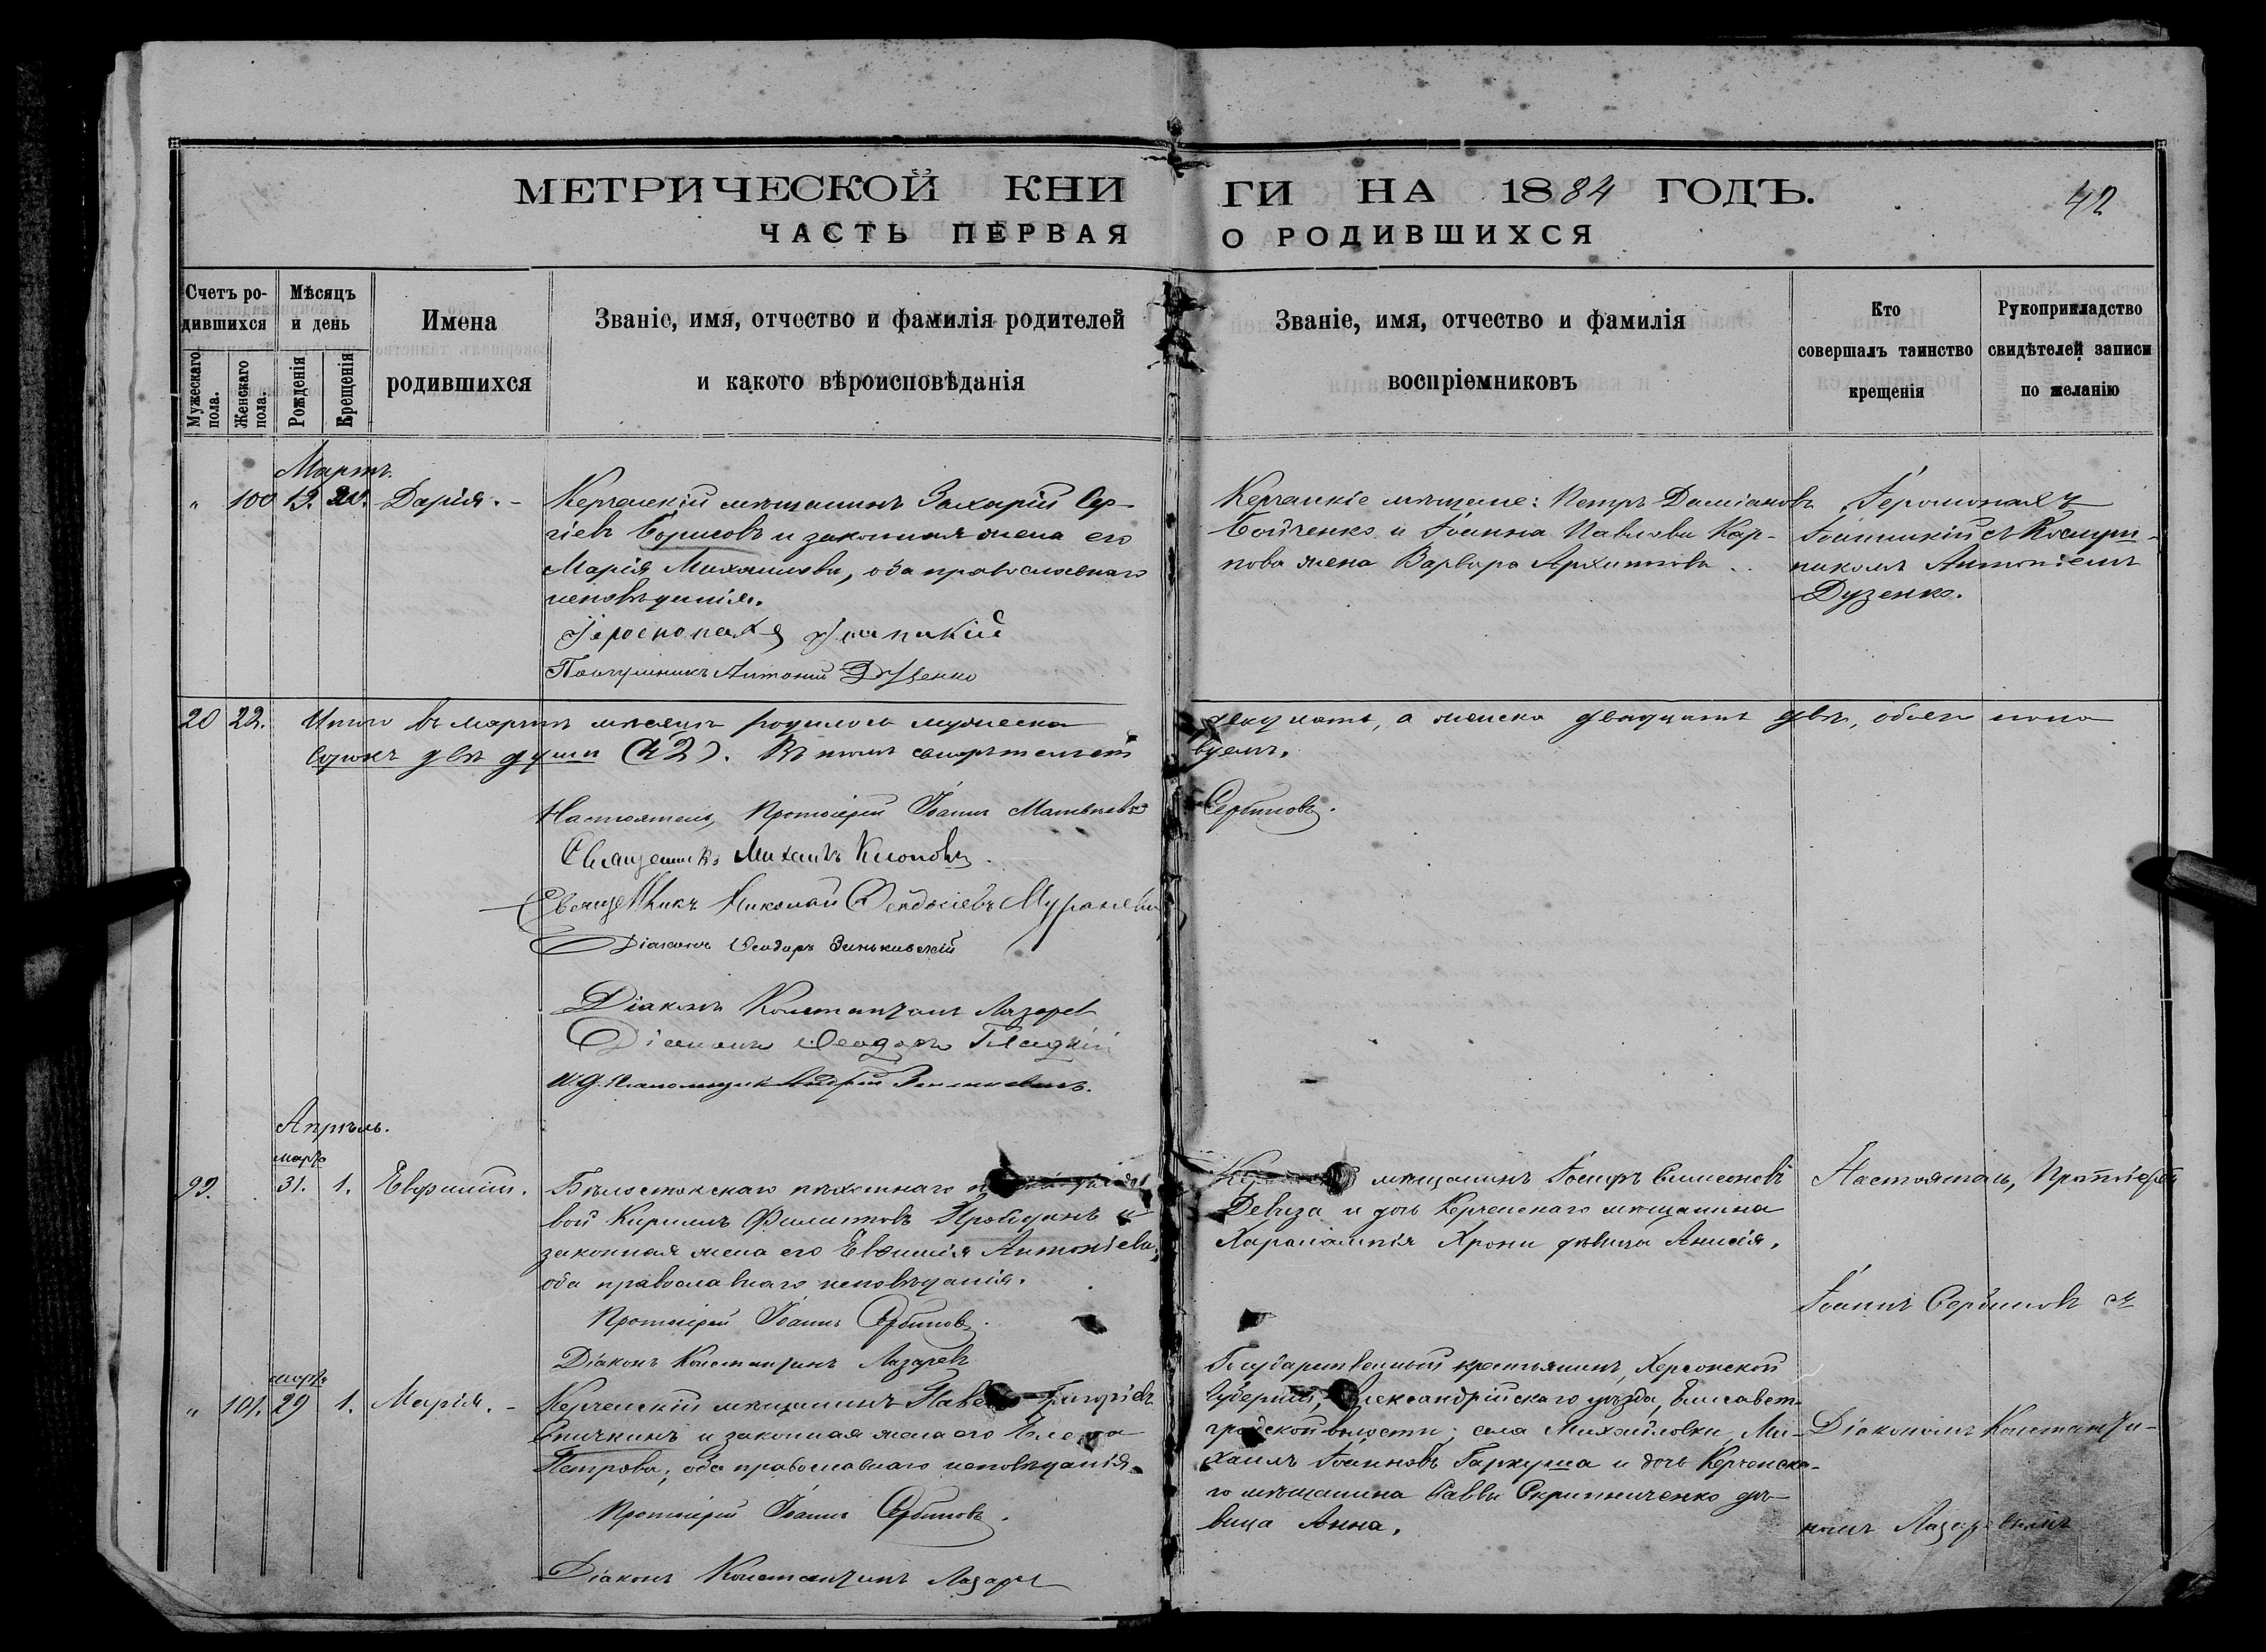 МЕТРИЧЕСКОЙ КНИ
ГИ НА 1884 ГОДЪ.
42
ЧАСТЬ ПЕРВАЯ
О РОДИВШИХСЯ
Счетъ ро-
дившихся
Мужескаго
пола.
Женскаго
пола.
Мѣсяцъ
и день
Рожденія
Крещенія
Имена
родившихся
Званіе, имя, отчество и фамилія родителей
и какого вѣроисповѣданія
Званіе, имя, отчество и фамилія
воспріемниковъ
Кто
совершалъ таинство
крещенія
Рукоприкладство
свидѣтелей записи
по желанію
Мартъ.
" 100 Дарія. -
Керченскій мѣщанинъ Захарій Сер-
гіевъ Борисовъ и законная жена его
Марія Михаилова, оба православнаго
исповѣданія.
Іеромонахъ
Послушникъ Антоній Дуценко
Керченскіе мѣщане: Петръ Даміановъ
Бойченко и Іоанна Павлова Кар-
пова жена Варвара
Іеромонахъ
съ Послуш-
никомъ Антоніемъ
Дузенко.
20 22. Итого въ мартѣ мѣсяцѣ родилось мужеска
двадцать, а женска двадцать двѣ, обоего пола
сорокъ двѣ души (42). Въ томъ свидѣтельст
вуемъ.
Настоятель, Протоіерей Іоаннъ Матвѣевъ
Сербиновъ.
Священникъ Михаилъ Клоповъ.
Священникъ Николай Феодосіевъ
Діаконъ Феодоръ Зиньковскій
Діаконъ Константинъ Лазарев
Діаконъ Феодоръ Гладкій
И.д. Псаломщика
Апрѣль.
марта
99. 31. 1. Евфимій.
Бѣлостокскаго пѣхотнаго
вой Кириллъ Филипповъ и
законная жена его Евфимія Антоніева,
оба православнаго исповѣданія.
Протоіерей Іоаннъ Сербиновъ.
Діаконъ Константинъ Лазаревъ
мѣщанинъ Іосифъ Симеоновъ
Девиза и дочь Керченскаго мѣщанина
Харалампія Хрони дѣвица Анисія.
Настоятель, Протоіерей
Іоаннъ Сербиновъ съ
марта
" 101. 29 1. Марія. -
Керченскій мѣщанинъ Григоріевъ
Спичкинъ и законная жена его Елена
Петрова, оба православнаго исповѣданія.
Протоіерей Іоаннъ Сербиновъ.
Діаконъ Константинъ Лазарев
Государственный крестьянинъ, Херсонской
Губерніи, Александрійскаго уѣзда, Елисавет-
градской волости, села Михайловки, Ми-
хаилъ Іоанновъ Гаркуша и дочь Керченска-
го мѣщанина Саввы Скрипниченко дѣ-
вица Анна.
Діакономъ Константи-
номъ Лазаревымъ